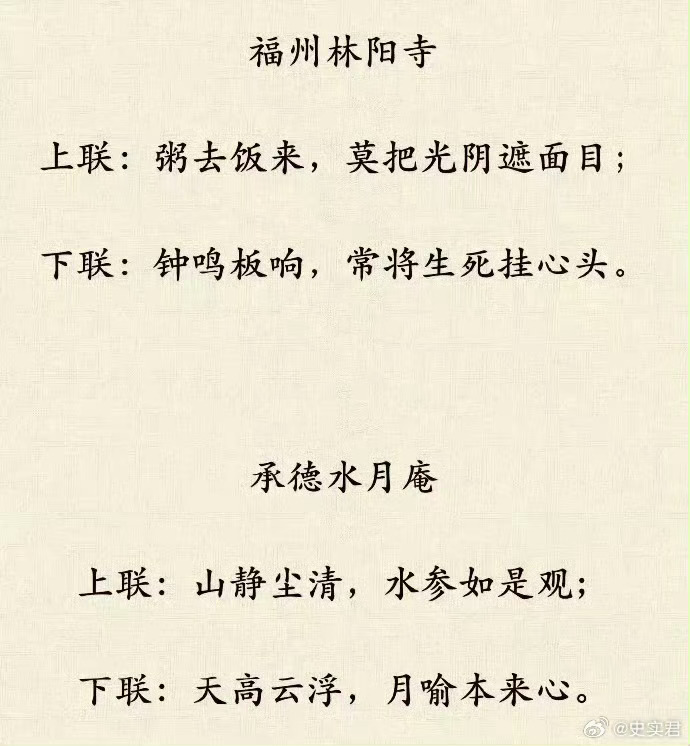 福州林阳寺
上联：粥去饭来，莫把光阴遮面目；
下联：钟鸣板响，常将生死挂心头。
承德水月庵
上联：山静尘清，水参如是观；
下联：天高云浮，月喻本来心。
@史实君